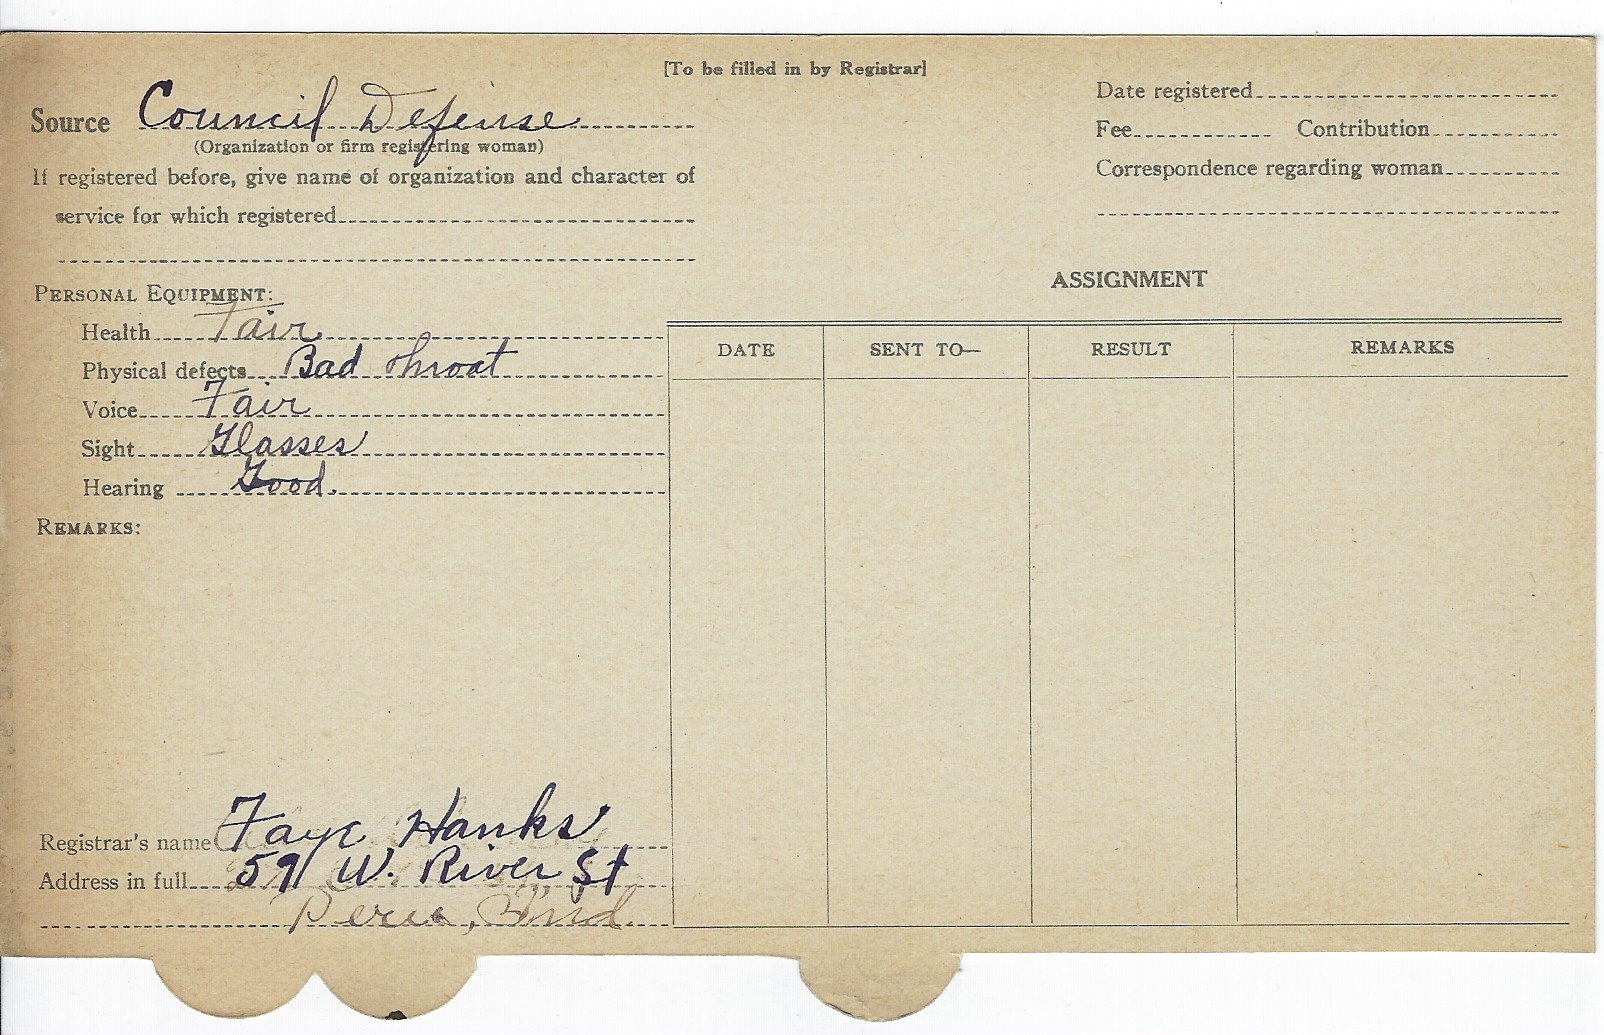 [To be filled in by Registrar]
Source Council Defense
(Organization or firm registering woman)
If registered before, give name of organization and character of
service for which registered
Date registered
Fee Contribution
Correspondence regarding woman
PERSONAL EQUIPMENT:
Health Fair
Physical defects Bad throat
Voice Fair
Sight Glasses
Hearing Good.
REMARKS:
ASSIGNMENT
DATE SENT TO— RESULT REMARKS
Registrar's name Faye Hanks
Address in full 591 W. River St
Peru, Ind.